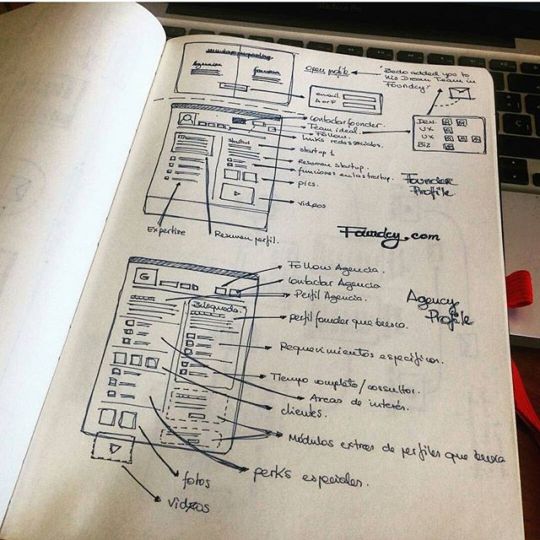 Agencia
founder
open profile
"Bedo added you to
his Dream Team in
Foundcy"
email
contactar founder.
Team ideal.
Follow.
links redes sociales.
startup 1
Resumen startup.
funciones en la startup.
pics.
videos
Expertise
Resumen perfil.
Dev.
UX
UX
Biz
Founder
Profile
Foundcy.com
Follow Agencia.
Contactar Agencia
Perfil Agencia.
Agency
Profile
G
Búsqueda
perfil founder que busca.
Requerimientos específicos.
Tiempo completo/consultor.
Areas de interés.
clientes.
Módulos extras de perfiles que busca
perks especiales.
fotos
videos